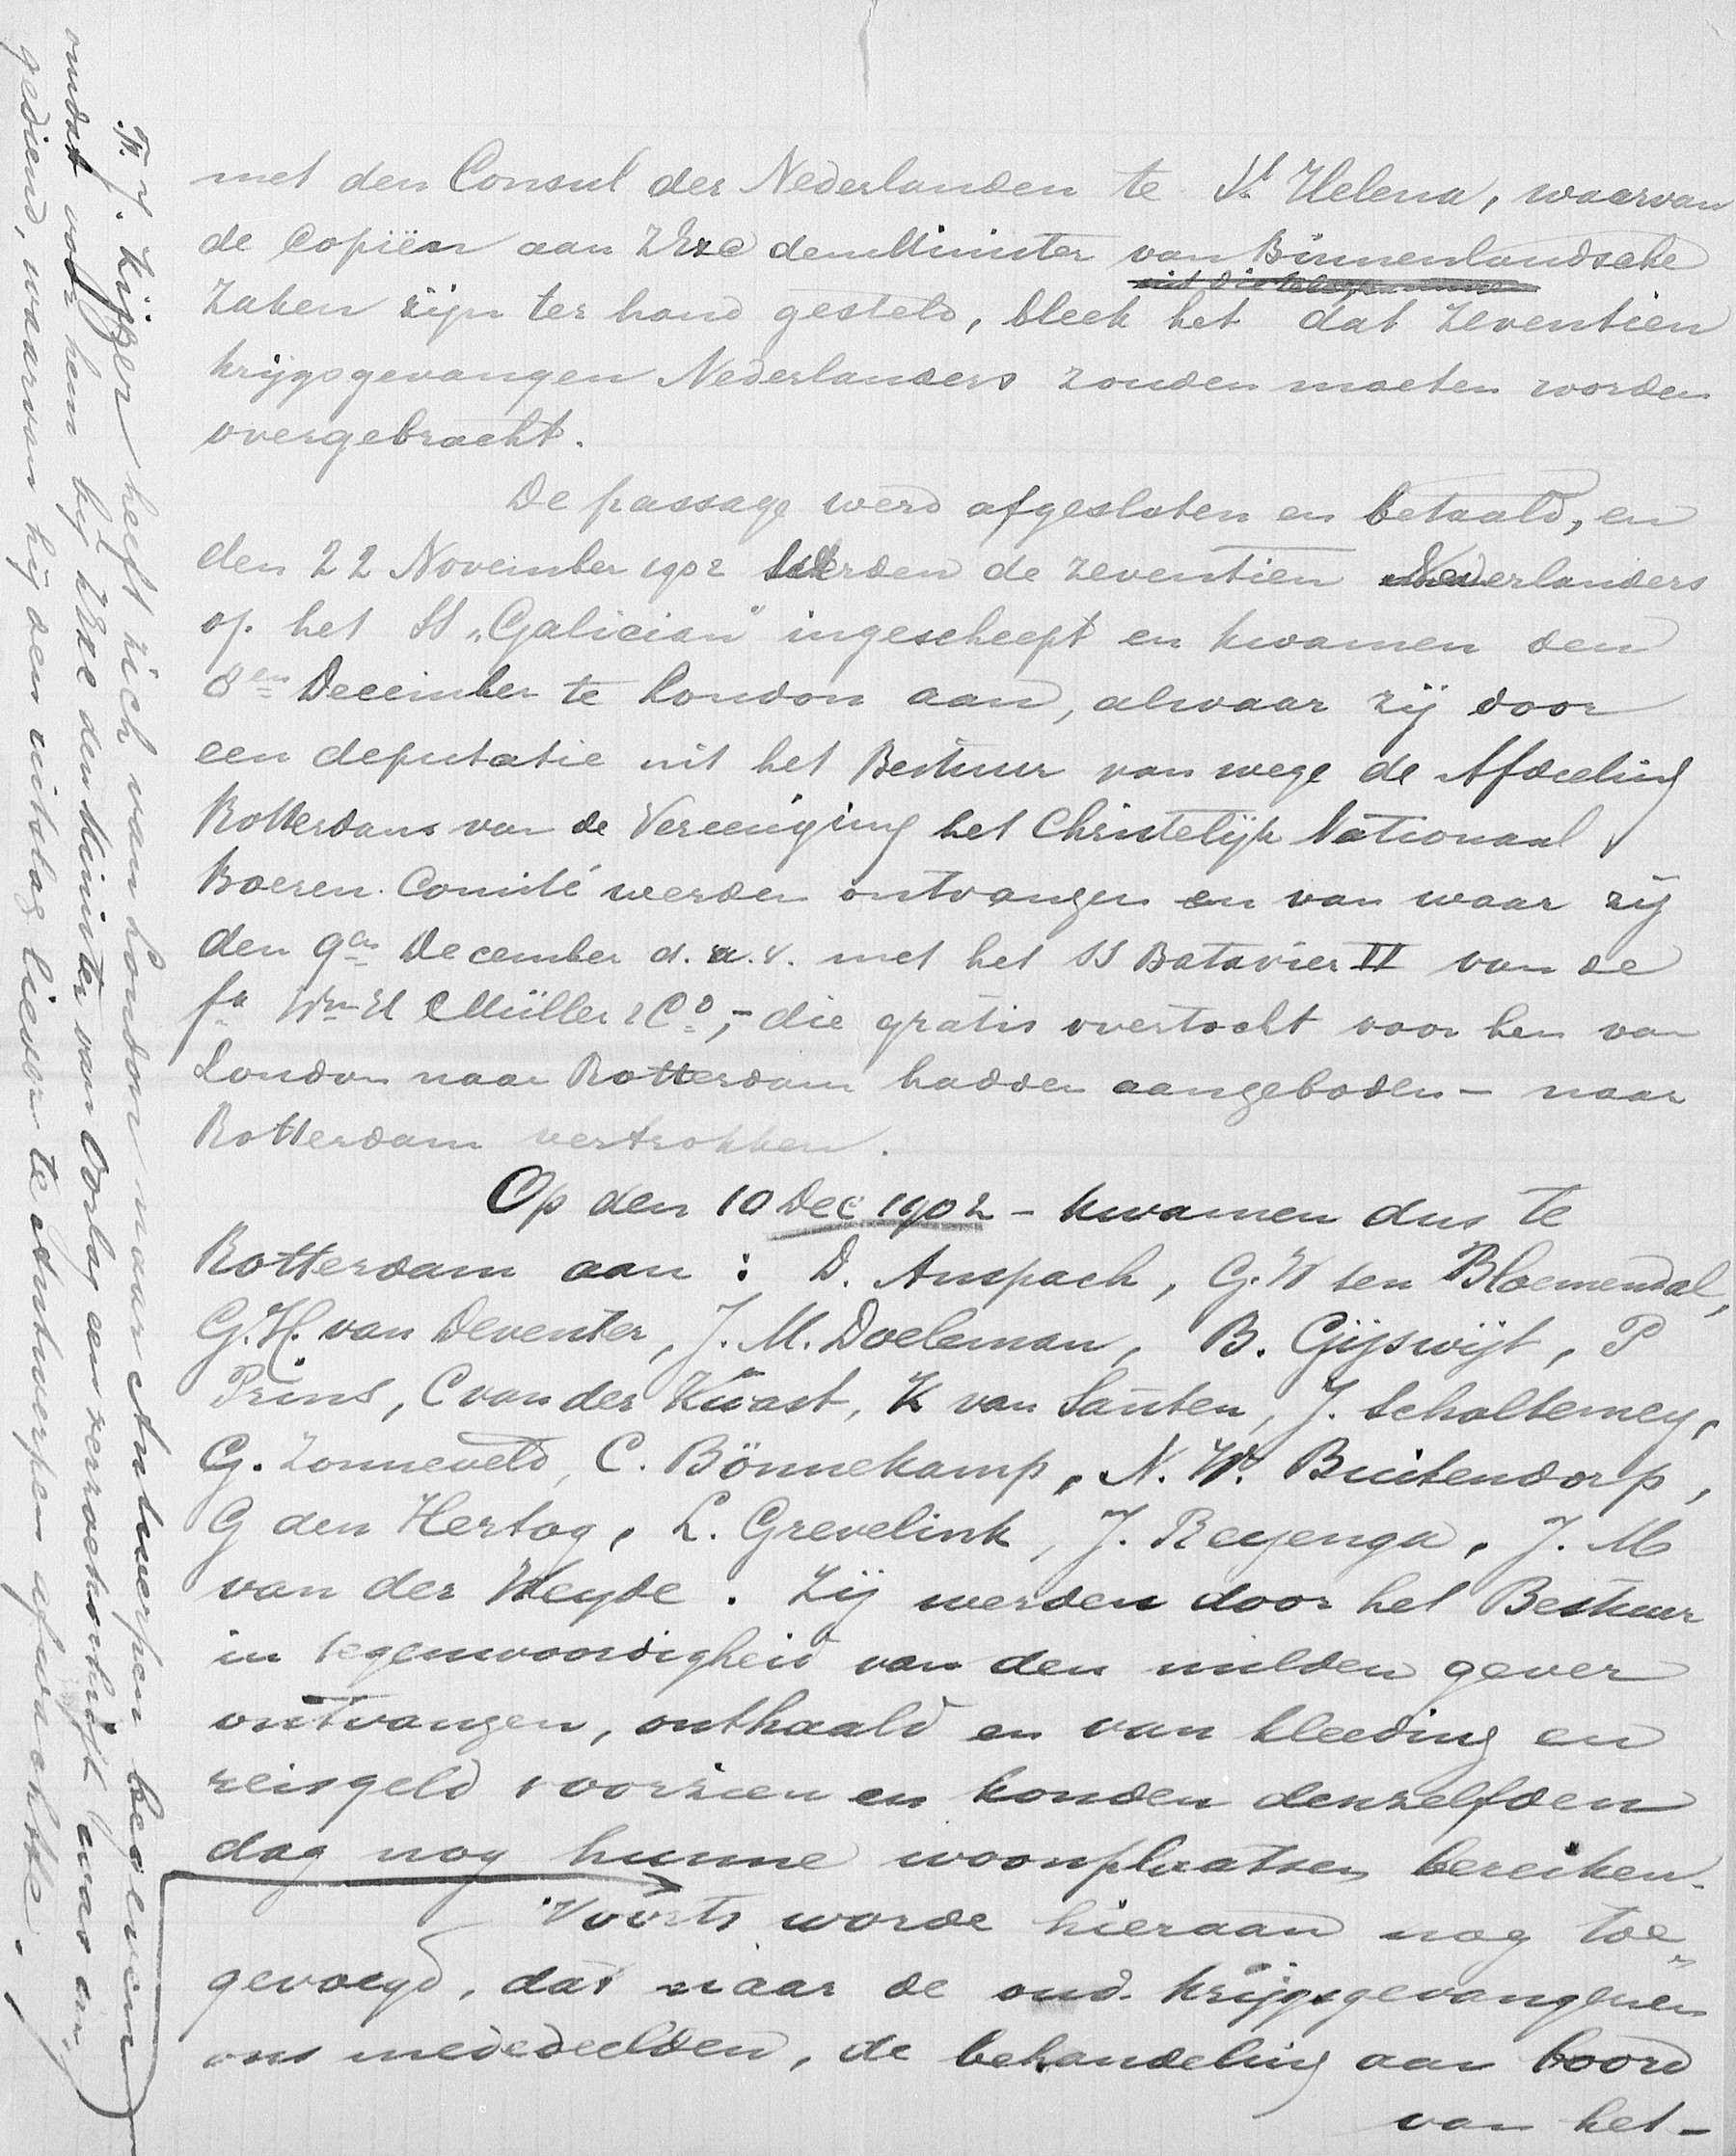 met den Consul der Nederlanden te St Helena, waarvan
de Copiën aan ZExc den Minister van Binnenlandsche
Zaken zijn ter hand gesteld, bleek het dat zeventien
krijgsgevangen Nederlanders zouden moeten worden
overgebracht.
De passage werd afgesloten en betaald, en
den 22 November 1902 werden de zeventien Nederlanders
op het SS "Galician" ingescheept en kwamen den
8en December te London aan, alwaar zij door
een deputatie uit het Bestuur van wege de Afdeeling
Rotterdam van de Vereeniging het Christelijk Nationaal
Boeren Comité werden ontvangen en van waar zij
den 9en December d.a.v. met het SS Batavier II van de
fa Wm H Müller & Co, - die gratis overtocht voor hen van
London naar Rotterdam hadden aangeboden - naar
Rotterdam vertrokken.
Op den 10 Dec 1902 - kwamen dus te
Rotterdam aan : D. Anspach, G. W ten Bloemendal,
G. H. van Deventer, J. M. Doeleman, B. Gijswijt, P
Prins, C van der Kwast, K van Santen, J. Scholtemey,
G. Zonneveld, C. Bönnekamp, N. W. Buitendorp,
G den Hertog, L. Grevelink, J. Reyenga, J. M
van der Weyde. Zij werden door het Bestuur
in tegenwoordigheid van den milden gever
ontvangen, onthaald en van kleeding en
reisgeld voorzien en konden denzelfden
dag nog hunne woonplaatsen bereiken.
Voorts worde hieraan nog toe"
gevoegd, dat naar de oud-krijgsgevangenen
ons mededeelden, de behandeling aan boord
van het -
J. Kijzer heeft zich van London naar Antwerpen begeven
omdat voor hem bij ZExc den Minister van Oorlog een verzoekschrift was in"
gediend, waarvan hij den uitslag liever te Antwerpen afwachtte.